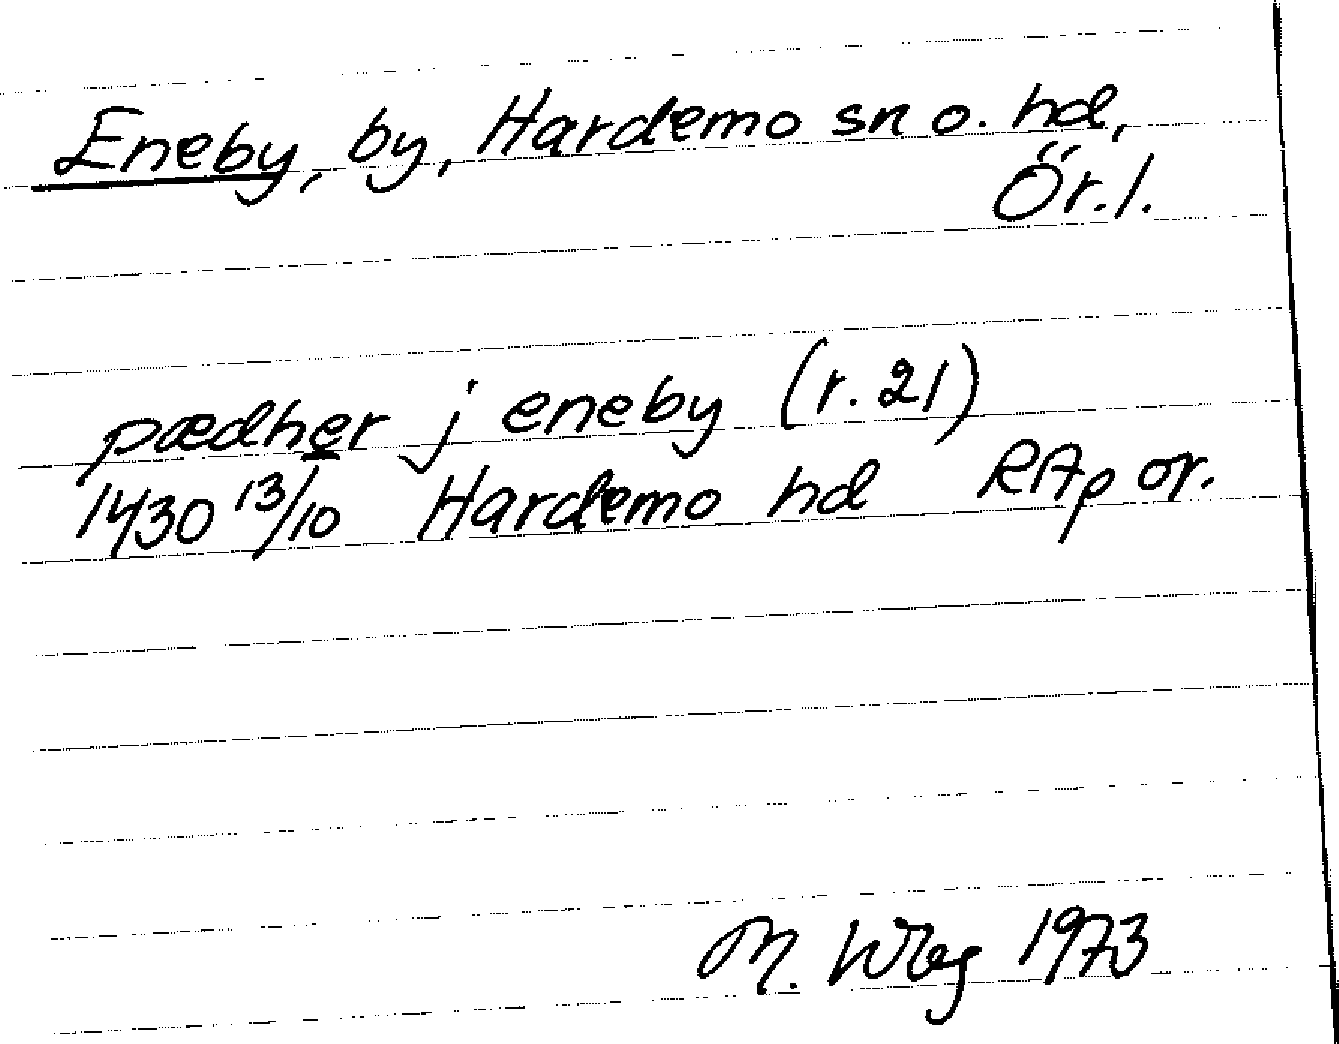 Eneby, by, Hardemo sn o. hd,
Ör. l.
pædher j eneby (r. 21)
1430 13/10 Hardemo hd RAp or.
M. Wbg 1973